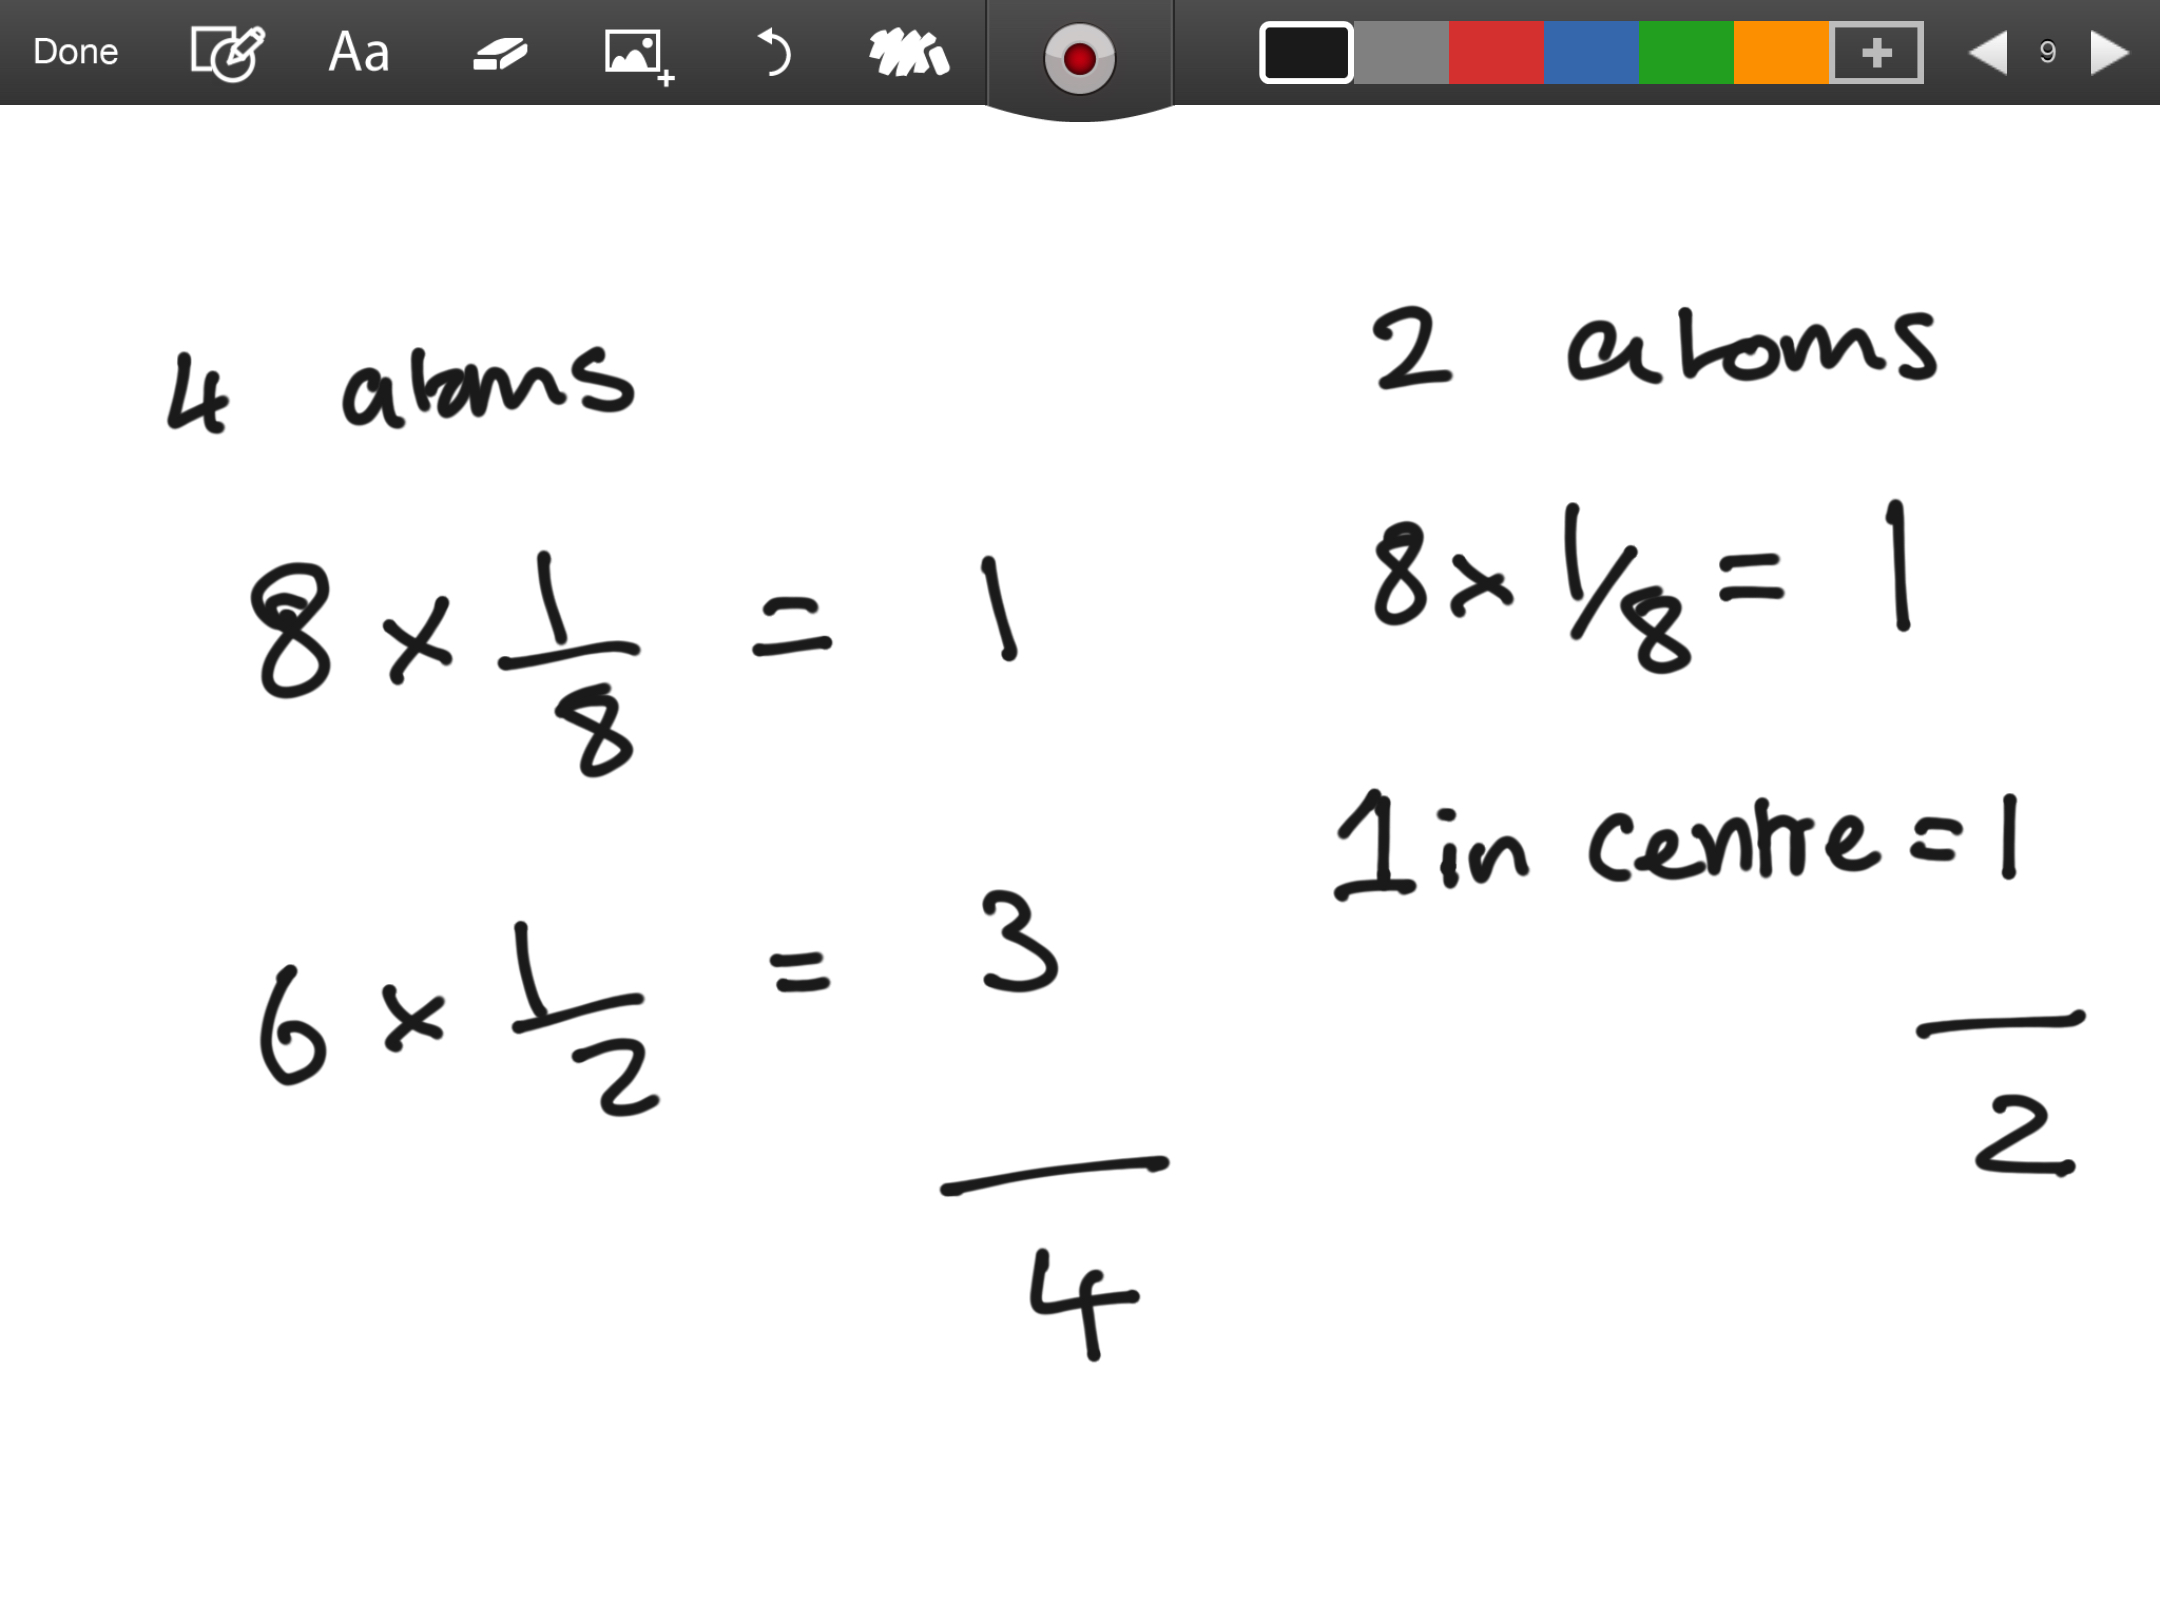 Done Aa 9
4 atoms
8 × 1/8 = 1
6 × 1/2 = 3
4
2 atoms
8 × 1/8 = 1
1 in centre = 1
2